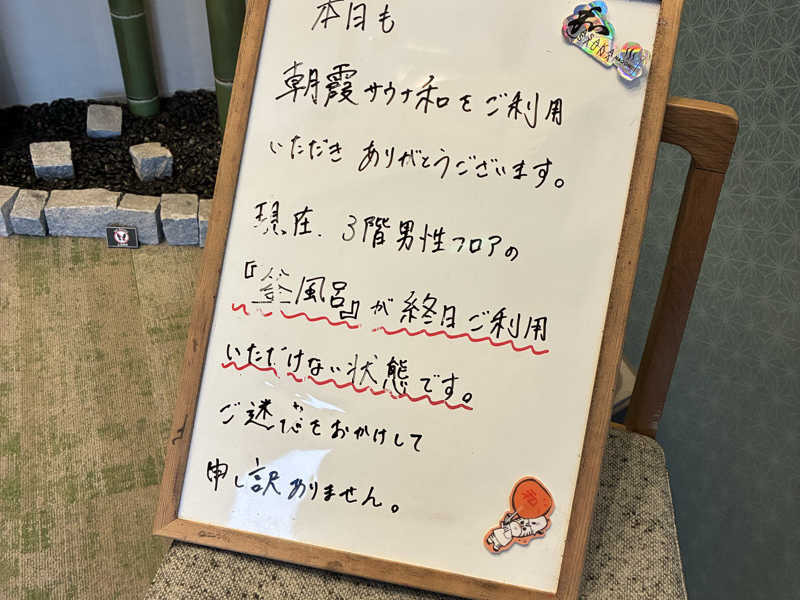 本日も
朝霞サウナ和をご利用
いただき ありがとうございます。
現在、3階男性フロアの
『釜風呂』が終日ご利用
いただけない状態です。
ご迷惑をおかけして
申し訳ありません。
和